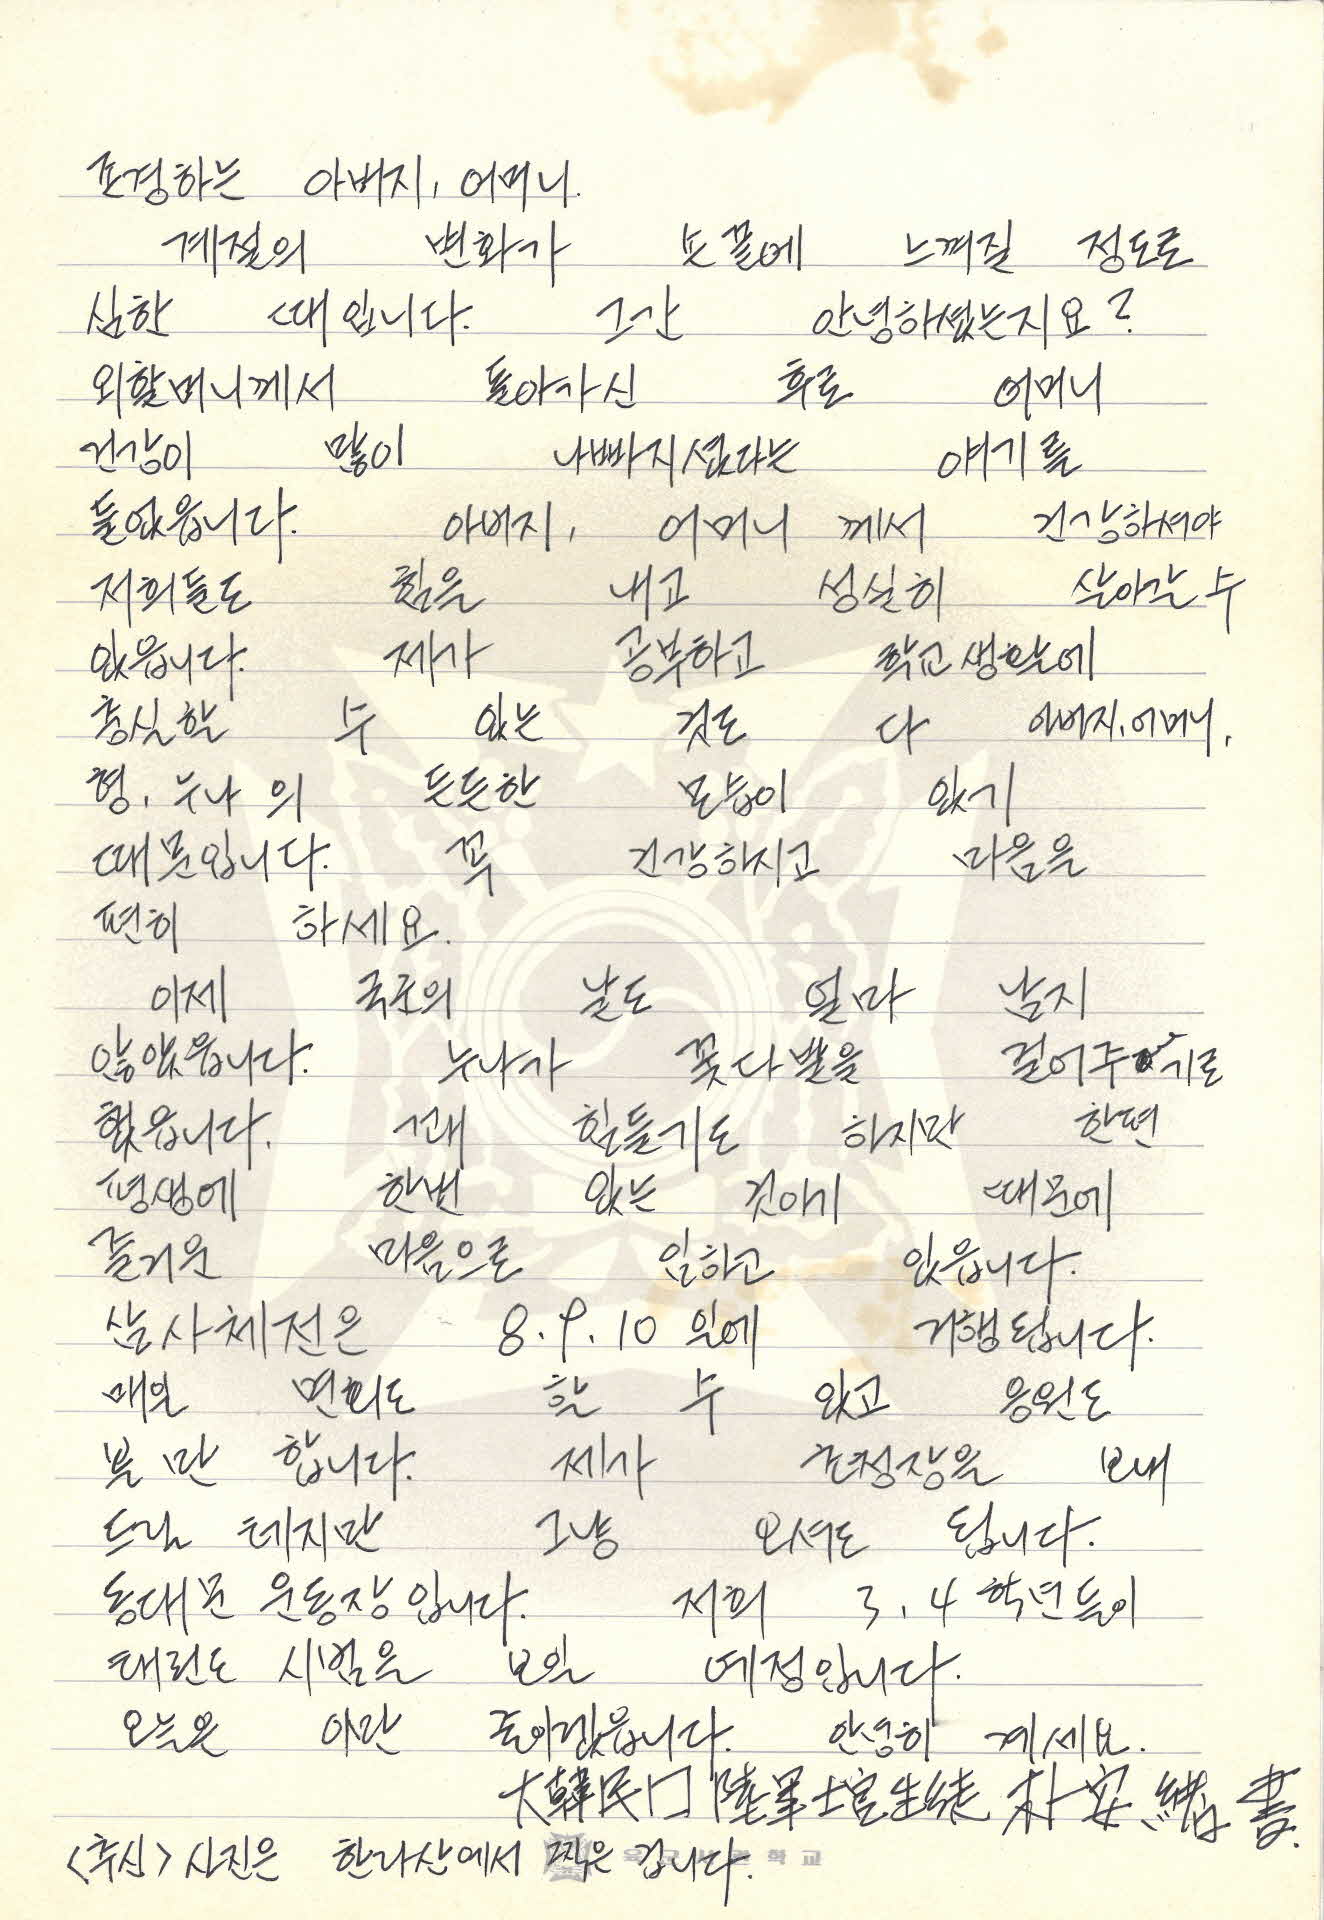 존경하는 아버지, 어머니.
계절의 변화가 손끝에 느껴질 정도로
심한 때입니다. 그간 안녕하셨는지요?
외할머니께서 돌아가신 후로 어머니
건강이 많이 나빠지셨다는 얘기를
들었읍니다. 아버지, 어머니께서 건강하셔야
저희들도 힘을 내고 성실히 살아갈 수
있읍니다. 제가 공부하고 학교생활에
충실할 수 있는 것도 다 아버지, 어머니,
형, 누나의 든든한 모습이 있기
때문입니다. 꼭 건강하시고 마음을
편히 하세요.
이제 국군의 날도 얼마 남지
않았읍니다. 누나가 꽃다발을 걸어주기로
했읍니다. 꽤 힘들기도 하지만 한편
평생에 한번 있는 것이기 때문에
즐거운 마음으로 임하고 있읍니다.
삼사체전은 8.9.10일에 거행됩니다.
매일 면회도 할 수 있고 응원도
볼만 합니다. 제가 초청장을 보내
드릴 테지만 그냥 오셔도 됩니다.
동대문 운동장입니다. 저희 3,4학년들이
태권도 시범을 보일 예정입니다.
오늘은 이만 줄이겠읍니다. 안녕히 계세요.
大韓民 陸軍士官生徒 朴安 書.
<추신> 사진은 한라산에서 찍은 겁니다.
육군사관학교